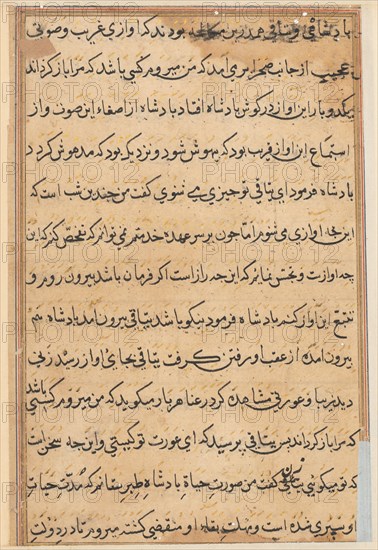 بودند که آوازی غریب و صوتی
عجیب از جانب صحرا برمی آمد که من میروم کسی باشد که مرا باز گرداند
یکدو بار این آواز در گوش بادشاه افتاد بادشاه از اصغاء این صوت و از
استماع این آواز قریب بود که بیهوش شود و نزدیک بود که مدهوش گردد
بادشاه فرمود ای یتاقی تو چیزی می شنوی گفت من چندین شب است که
این آوازی می شنوم اما چون بر سر عهده خدمتم نمی توانم که تفحص کنم که این
چه آوازست و تجسس نمایم که این چه رازاست اگر فرمان باشد بیرون روم و
تتبع این آواز کنم بادشاه فرمود نیکو باشد یتاقی بیرون آمد بادشاه هم
بیرون آمده از عقب او رفتن گرفت یتاقی بجای آواز رسید زنی
دید زیبا و عورتی مشاهده کرد رعنا هر بار میگوید که من میروم کسی باشد
که مرا باز گرداند پس یتاقی پرسید که ای عورت تو کیستی و این چه سخن است
که تو میگویی زن گفت من صورت حیاة بادشاه طبرستانم که مدت حیات
او سپری شده است و مهلت بقاء او منقضی گشته میروم تا در دولت